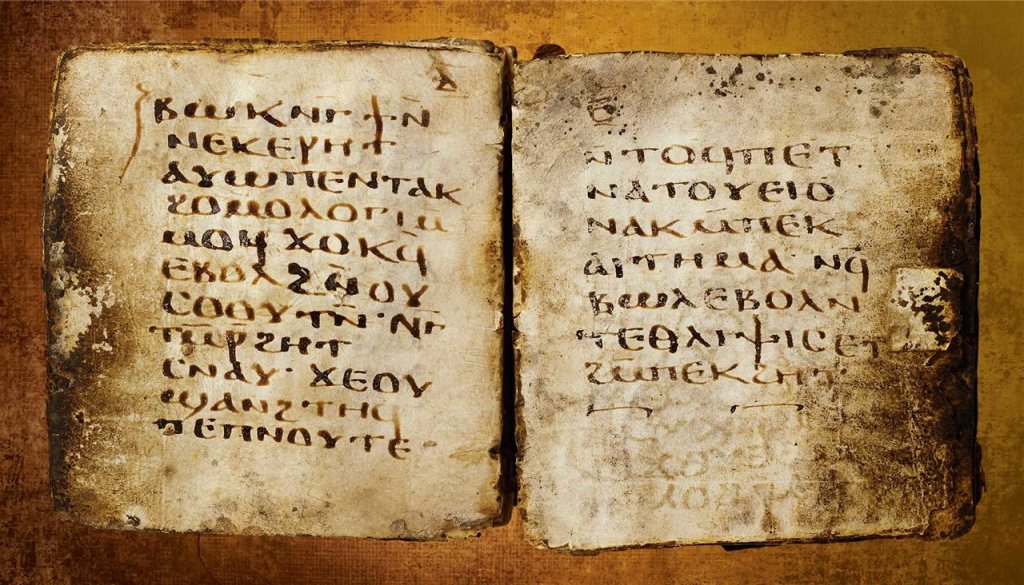 ⲇ̄
ⲃⲱⲕⲛⲅ̄ϯⲛ̄
ⲛⲉⲕⲉⲣⲏⲧ
ⲁⲩⲱⲡⲉⲛⲧⲁⲕ
ϩⲟⲙⲟⲗⲟⲅⲓⲙ̄
ⲙⲟϥ ϫⲟⲕϥ̄
ⲉⲃⲟⲗ ϩⲛ̄ⲟⲩ
ⲥⲟⲟⲩⲧⲛ̄· ⲛⲅ̄
ⲧⲙ̄ⲣ̄ϩⲏⲧ
ⲥⲛⲁⲩ· ϫⲉⲟⲩ
ϣⲁⲛϩⲧⲏϥ
ⲡⲉⲡⲛⲟⲩⲧⲉ·
ⲉ̄
ⲛ̄ⲧⲟϥⲡⲉⲧ
ⲛⲁⲧⲟⲩⲉⲓⲟ
ⲛⲁⲕⲙ̄ⲡⲉⲕ
ⲁⲓⲧⲏⲙⲁ· ⲛϥ̄
ⲃⲱⲗⲉⲃⲟⲗⲛ̄
ⲧⲉⲑⲗⲓⲯⲓⲥⲉⲧ
ϩⲙ̄ⲡⲉⲕϩⲏⲧ·